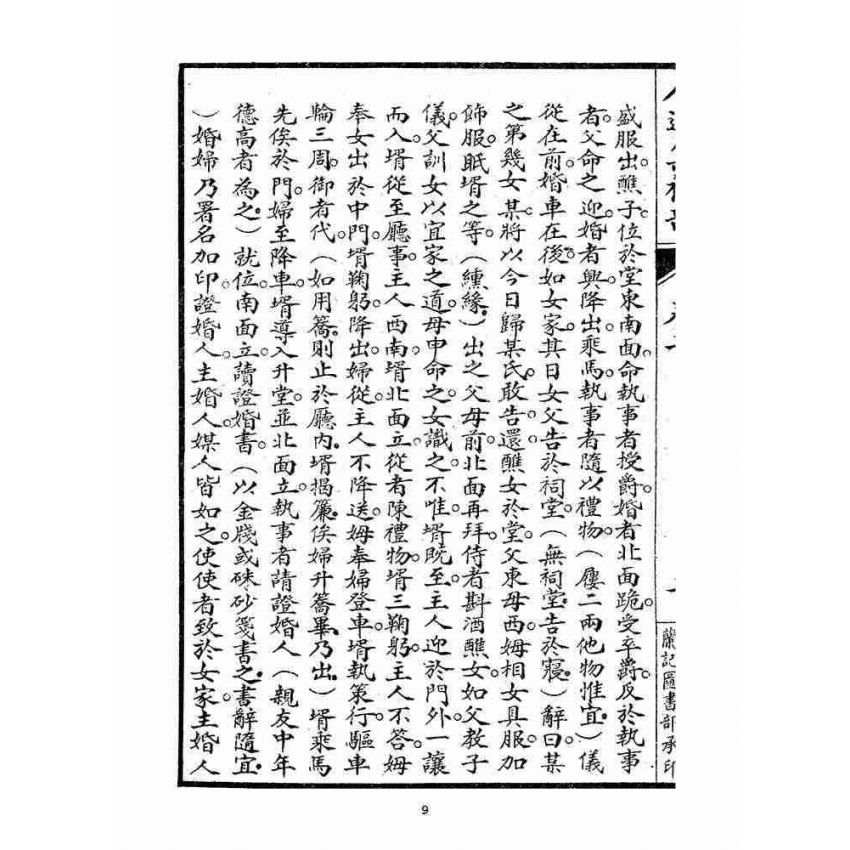 盛服出。醮子。位於堂東南面。命執事者授爵。婚者北面跪。受卒爵。反於執事
者。父命之迎。婚者興。降出。乘馬。執事者隨以禮物。（屨二兩他物惟宜。）儀
從在前。婚車在後。如女家。其日女父告於祠堂。（無祠堂。告於寢。）辭曰。某
之第幾女某。將以今日歸某氏。敢告。還醮女於堂。父東母西。姆相女具服。加
飾服。眂壻之等。（纁緣。）出之父母前。北面再拜。侍者斟酒醮女。如父教子
儀。父訓女以宜家之道。母申命之。女識之不唯。壻既至。主人迎於門外。一讓
而入。壻從至廳事。主人西南。壻北面立。從者陳禮物。壻三鞠躬。主人不答。姆
奉女出於中門。壻鞠躬。降出。婦從。主人不降送。姆奉婦登車。壻執策行。驅車
輪三周。御者代。（如用籥。則止於廳內。壻揭簾。俟婦升籥畢。乃出。）壻乘馬
先俟於門。婦至降車。壻導入升堂。並北面立。執事者請證婚人（親友中年
德高者為之。）就位。南面立。讀證婚書。（以金牋或硃砂箋書之。書辭隨宜。
）婚婦乃署名加印。證婚人。主婚人。媒人皆如之。使使者致於女家。主婚人
蘭記圖書部承印
9